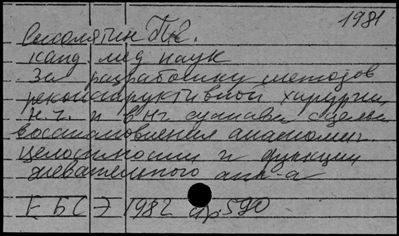 1981
Смолягин П.С.
канд. мед наук
За разработку методов
реконструктивной хирургии
н.ч. и в н ч сустава с целью
восстановления анатомич.
целостности и функции
жевательного апп-а
Е Б С Э 1982 стр. 590